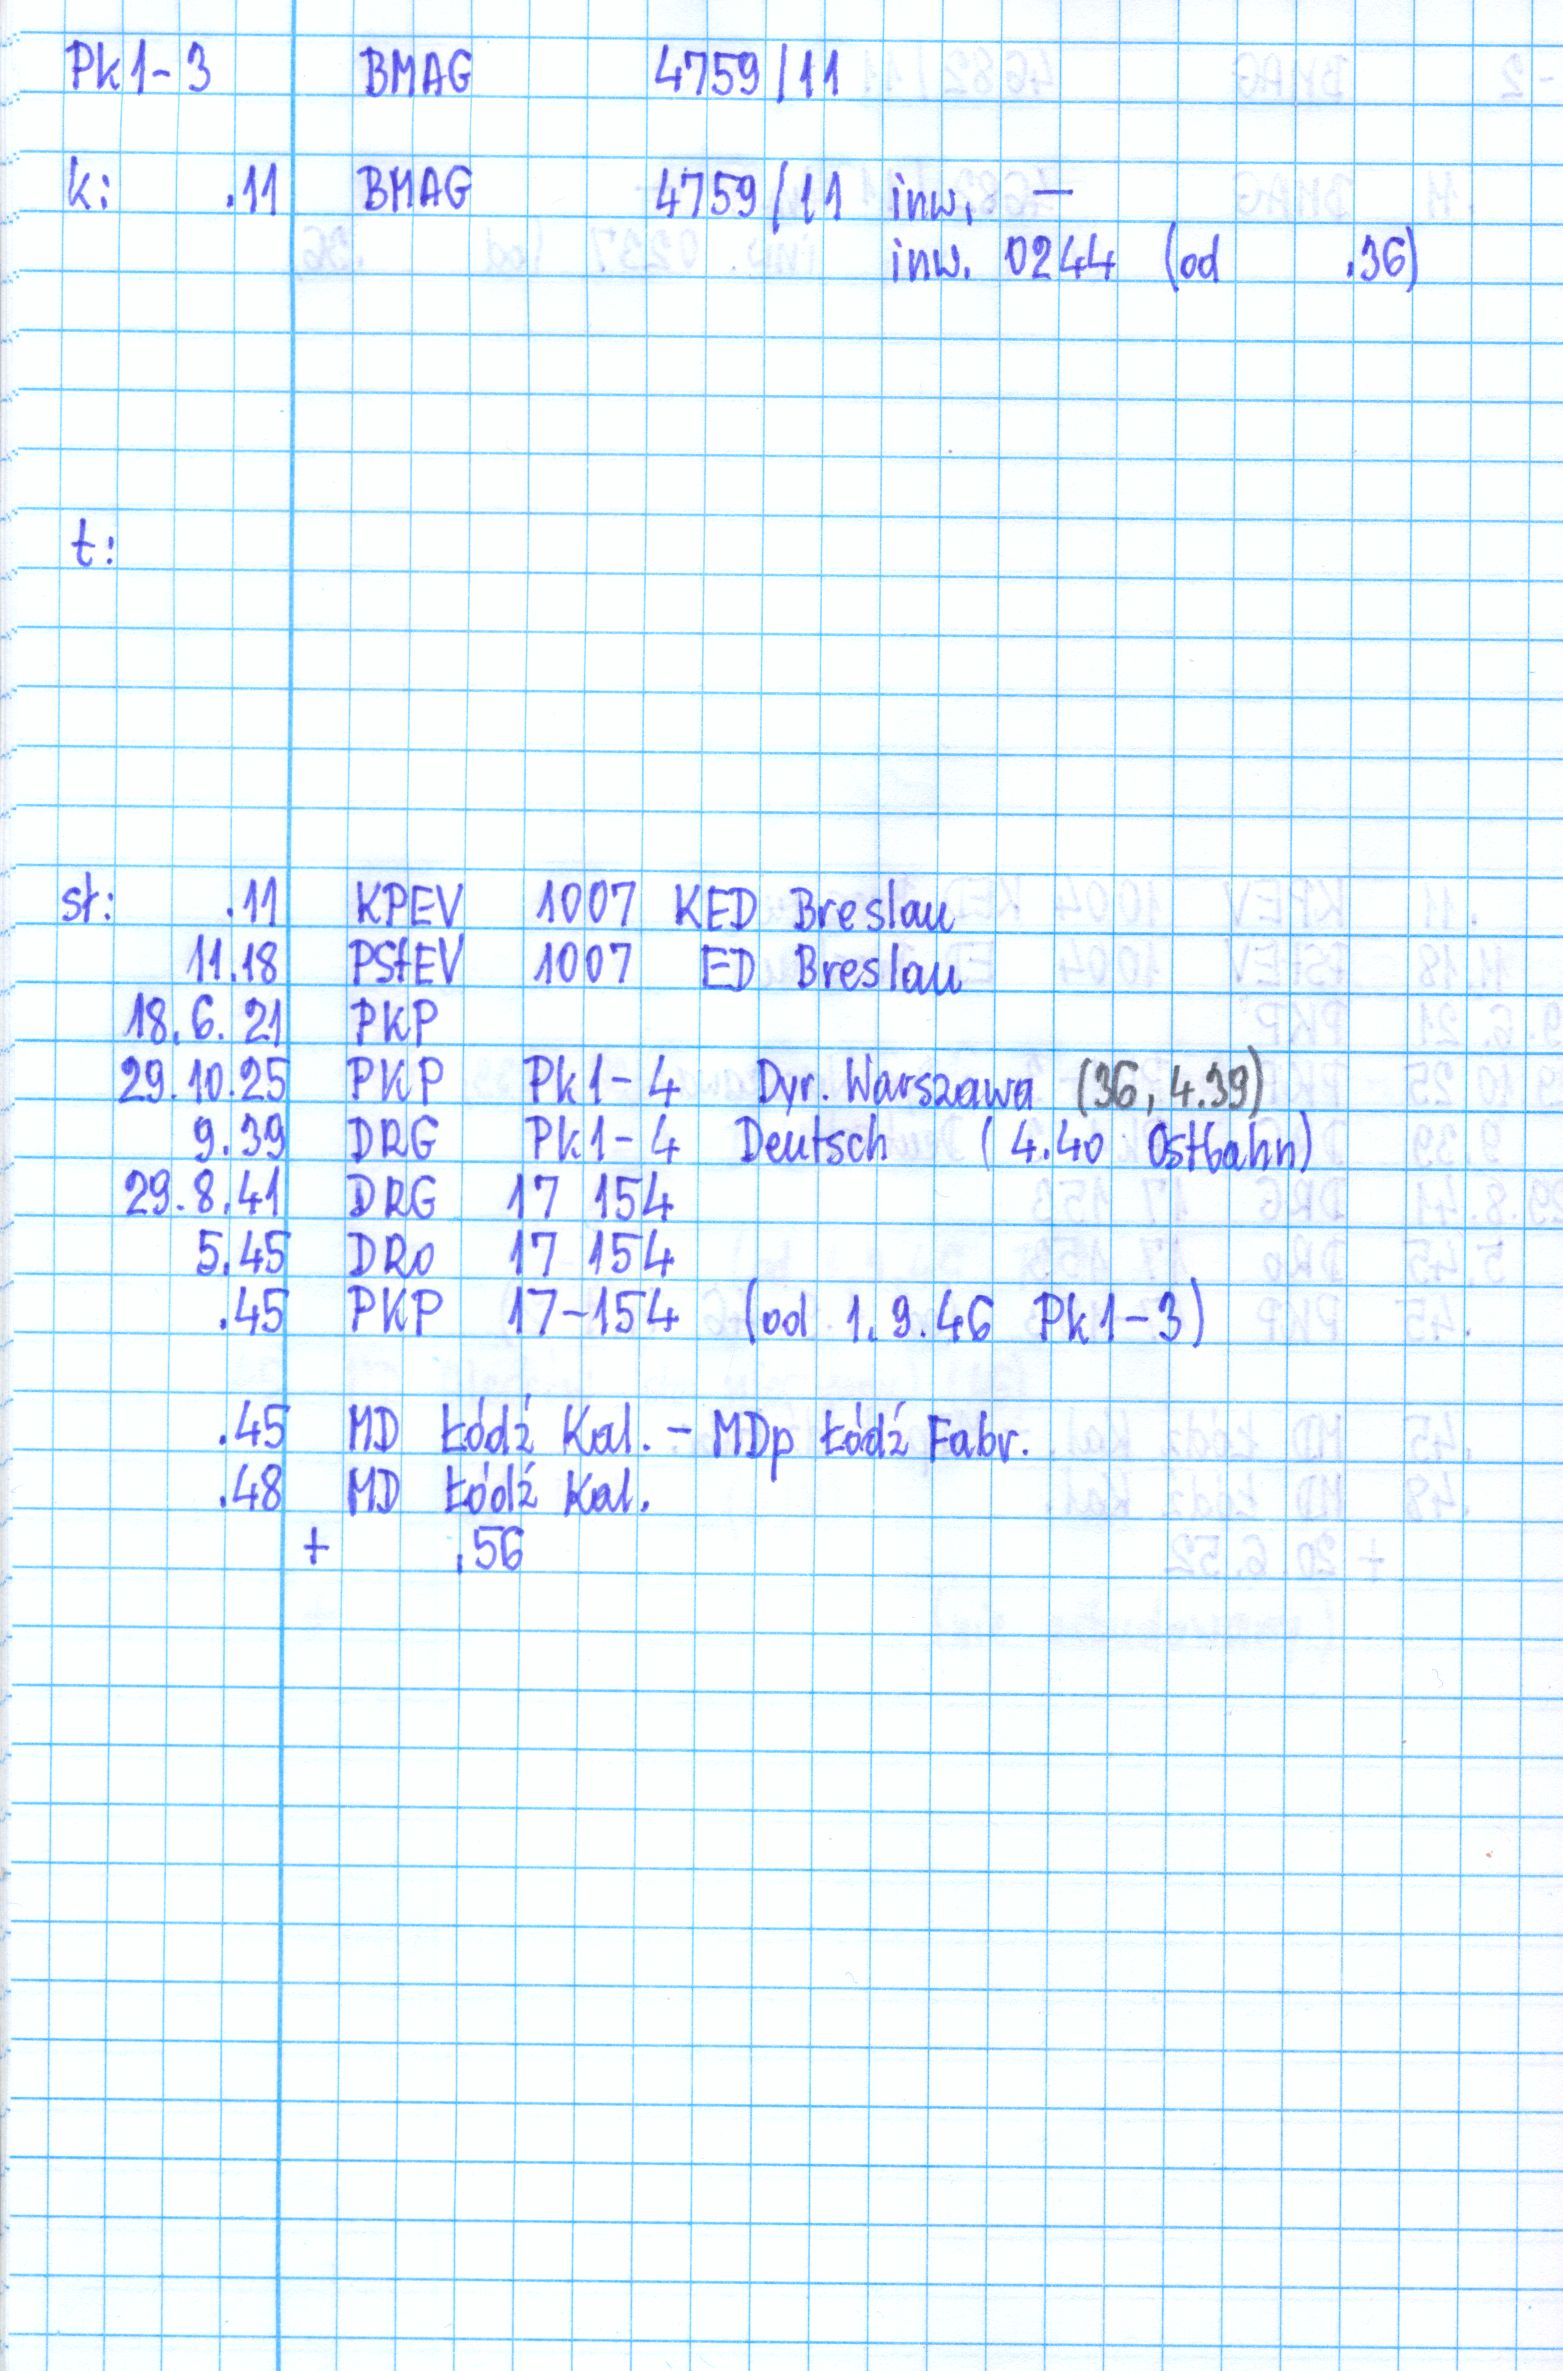 Pk1-3 BMAG 4759/11
k: .11 BMAG 4759/11 inw. —
inw. 0244 (od .36)
t:
st: .11 KPEV 1007 KED Breslau
11.18 PStEV 1007 ED Breslau
18.6.21 PKP
29.10.25 PKP Pk1-4 Dyr. Warszawa (36, 4.39)
9.39 DRG Pk1-4 Deutsch (4.40 Ostbahn)
29.8.41 DRG 17 154
5.45 DRo 17 154
.45 PKP 17-154 (od 1.9.46 Pk1-3)
.45 MD Łódź Kal. - MDp Łódź Fabr.
.48 MD Łódź Kal.
+ .56